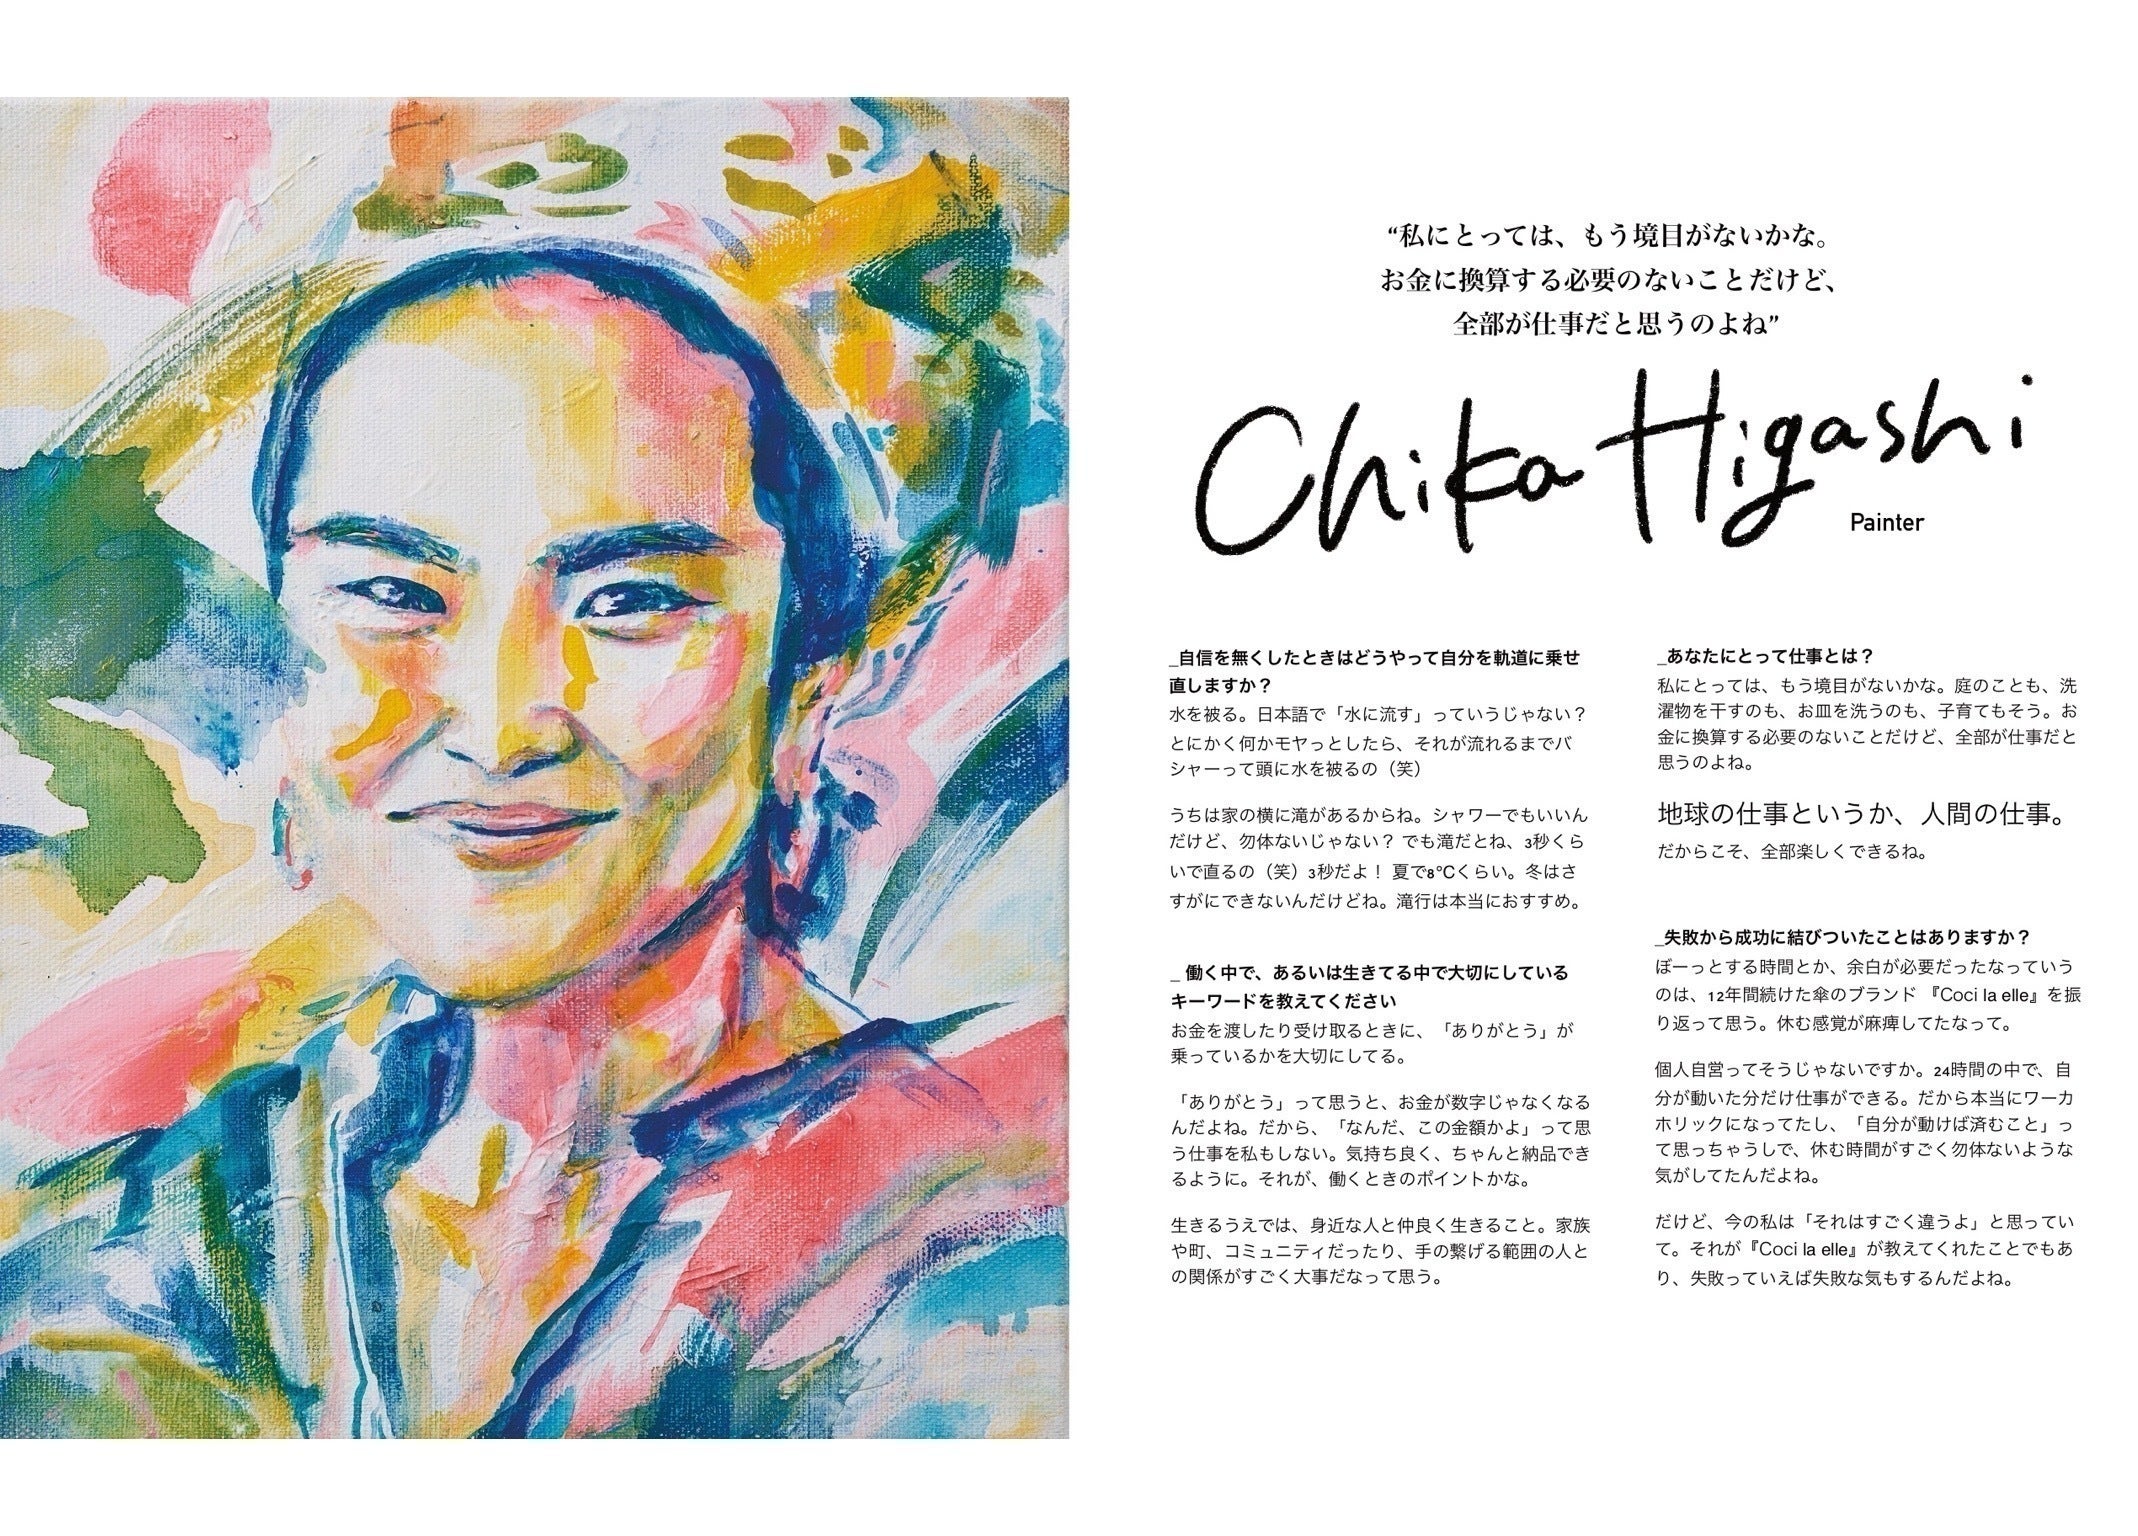 “私にとっては、もう境目がないかな。
お金に換算する必要のないことだけど、
全部が仕事だと思うのよね”
Chika Higashi
Painter
_自信を無くしたときはどうやって自分を軌道に乗せ
直しますか？
水を被る。日本語で「水に流す」っていうじゃない？
とにかく何かモヤっとしたら、それが流れるまでバ
シャーって頭に水を被るの（笑）
うちは家の横に滝があるからね。シャワーでもいいん
だけど、勿体ないじゃない？ でも滝だとね、3秒くら
いで直るの（笑）3秒だよ！ 夏で8℃くらい。冬はさ
すがにできないんだけどね。滝行は本当におすすめ。
_ 働く中で、あるいは生きてる中で大切にしている
キーワードを教えてください
お金を渡したり受け取るときに、「ありがとう」が
乗っているかを大切にしてる。
「ありがとう」って思うと、お金が数字じゃなくなる
んだよね。だから、「なんだ、この金額かよ」って思
う仕事を私もしない。気持ち良く、ちゃんと納品でき
るように。それが、働くときのポイントかな。
生きるうえでは、身近な人と仲良く生きること。家族
や町、コミュニティだったり、手の繋げる範囲の人と
の関係がすごく大事だなって思う。
_あなたにとって仕事とは？
私にとっては、もう境目がないかな。庭のことも、洗
濯物を干すのも、お皿を洗うのも、子育てもそう。お
金に換算する必要のないことだけど、全部が仕事だと
思うのよね。
地球の仕事というか、人間の仕事。
だからこそ、全部楽しくできるね。
_失敗から成功に結びついたことはありますか？
ぼーっとする時間とか、余白が必要だったなっていう
のは、12年間続けた傘のブランド 『Coci la elle』を振
り返って思う。休む感覚が麻痺してたなって。
個人自営ってそうじゃないですか。24時間の中で、自
分が動いた分だけ仕事ができる。だから本当にワーカ
ホリックになってたし、「自分が動けば済むこと」っ
て思っちゃうしで、休む時間がすごく勿体ないような
気がしてたんだよね。
だけど、今の私は「それはすごく違うよ」と思ってい
て。それが『Coci la elle』が教えてくれたことでもあ
り、失敗っていえば失敗な気もするんだよね。